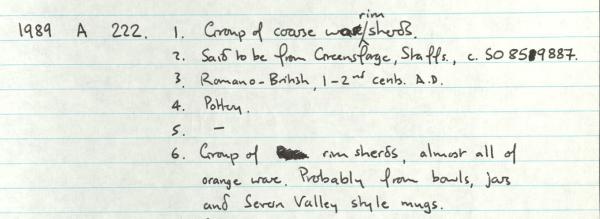 1989 A 222. 1. Group of coarse ware rim sherds.
2. Said to be from Greensforge, Staffs., c. SO 859887.
3. Romano-British, 1-2nd cents. A.D.
4. Pottery.
5. -
6. Group of rim sherds, almost all of
orange ware. Probably from bowls, jars
and Severn Valley style mugs.